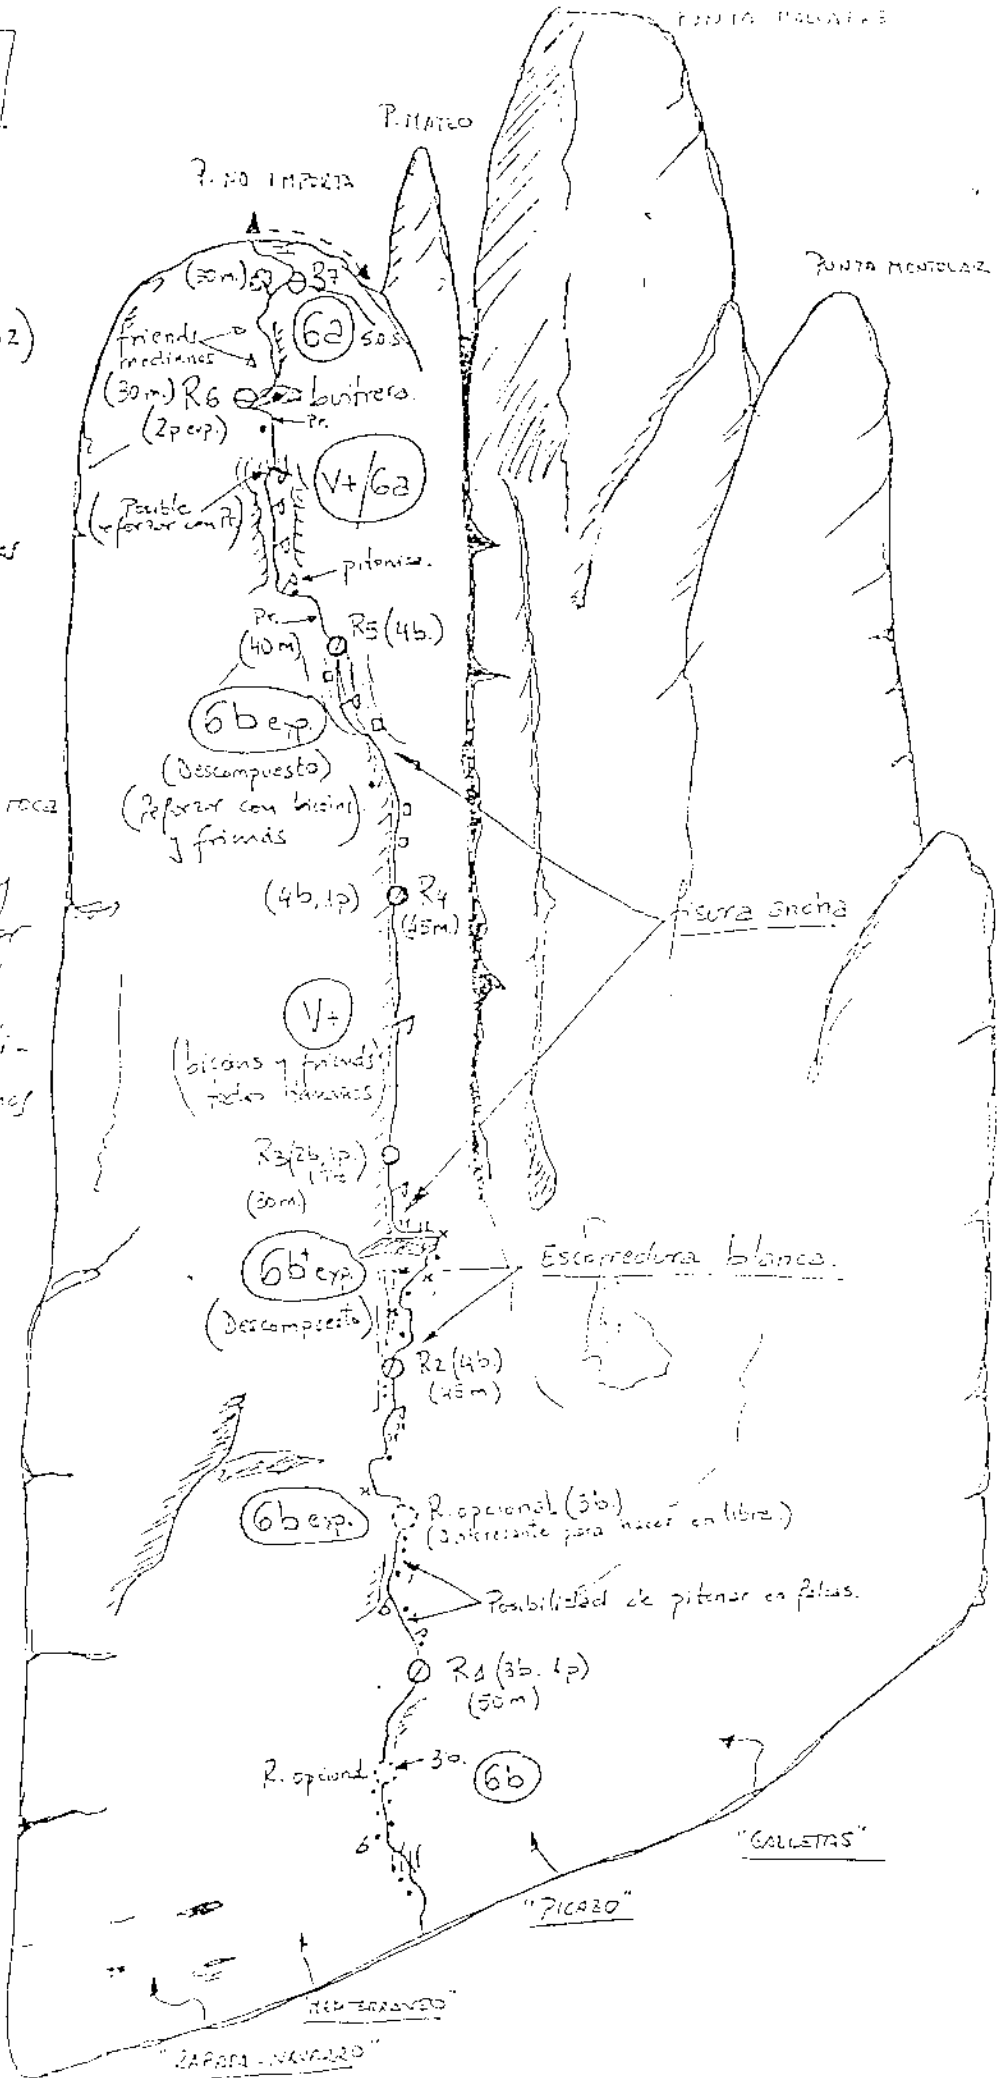 P. MATEO
P. NO IMPORTA
PUNTA MONTOLAR
(30m.)
R7
6a
S.O.S.
friends
medianos
(30m.) R6
buitrera.
(2p exp.)
Pr.
V+/6a
Posible
pitonisa.
Pr.
R5 (4b.)
(40m)
6b exp.
(Descompuesto)
(Reforzar con bicoins
y friends
roca
(4b, 1p)
R4
(45m.)
fisura ancha
V+
(bicoins y friends
R3 (2b, 1p.)
(30m.)
6b+ exp.
(Descompuesto)
Escorredura blanca.
R2 (4b.)
(45m)
6b exp.
R. opcional (3b.)
(interesante para hacer en libre.)
Posibilidad de pitonar en fisuras.
R1 (3b. 1p)
(50m)
R. opcional
3b.
6b
"GALLETAS"
"PICAZO"
"MEDITERRANEO"
"ZAPATA-NAVARRO"